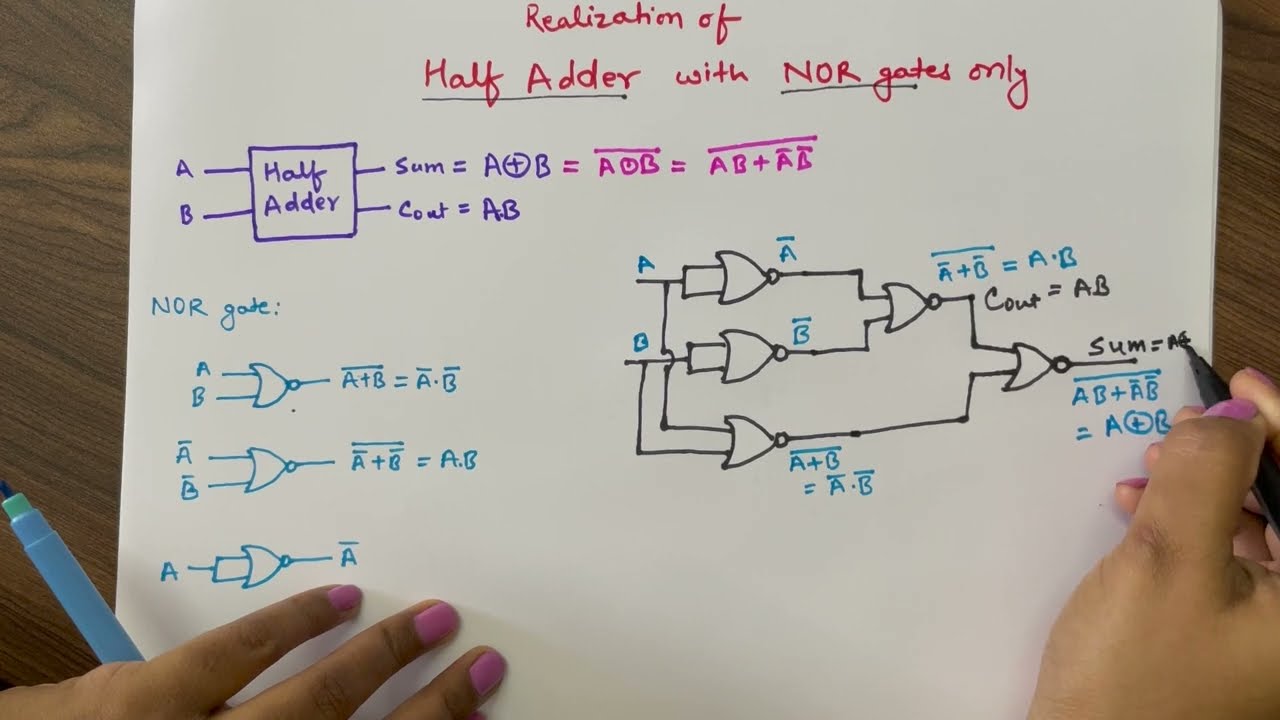 Realization of
Half Adder with NOR gates only
A
B
Half
Adder
Sum = A⊕B = A̅⊙̅B̅ = A̅B̅ ̅+̅ ̅A̅̅B̅̅
Cout = A.B
NOR gate:
A
B
A̅+̅B̅ = A̅.B̅
A̅
B̅
A̅̅+̅B̅̅ = A.B
A
A̅
A
A̅
B
B̅
A̅̅+̅B̅̅ = A.B
Cout = AB
A̅+̅B̅
= A̅.B̅
Sum = A⊕
A̅B̅+̅A̅̅B̅̅
= A⊕B